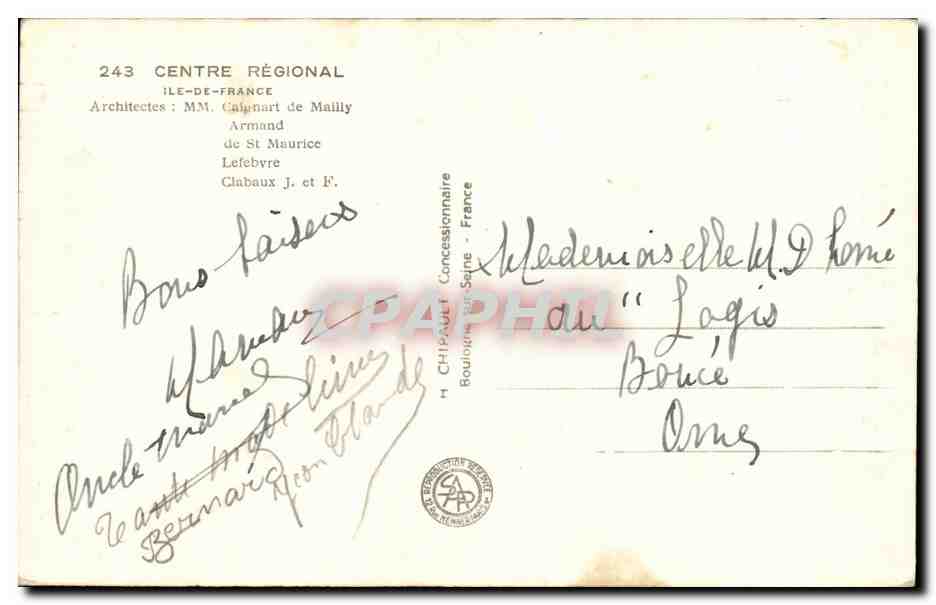 243 CENTRE RÉGIONAL
ILE-DE-FRANCE
Architectes : MM. Caignart de Mailly
Armand
de St Maurice
Lefebvre
Clabaux J. et F.
Bons baisers
Maman
Oncle Marcel
Tante
Bernard
H CHIPAULT Concessionnaire
Boulogne-sur-Seine - France
CPAPHIL
Mademoiselle M. D
au "Logis
Boucé
Orne
REPRODUCTION RÉSERVÉE